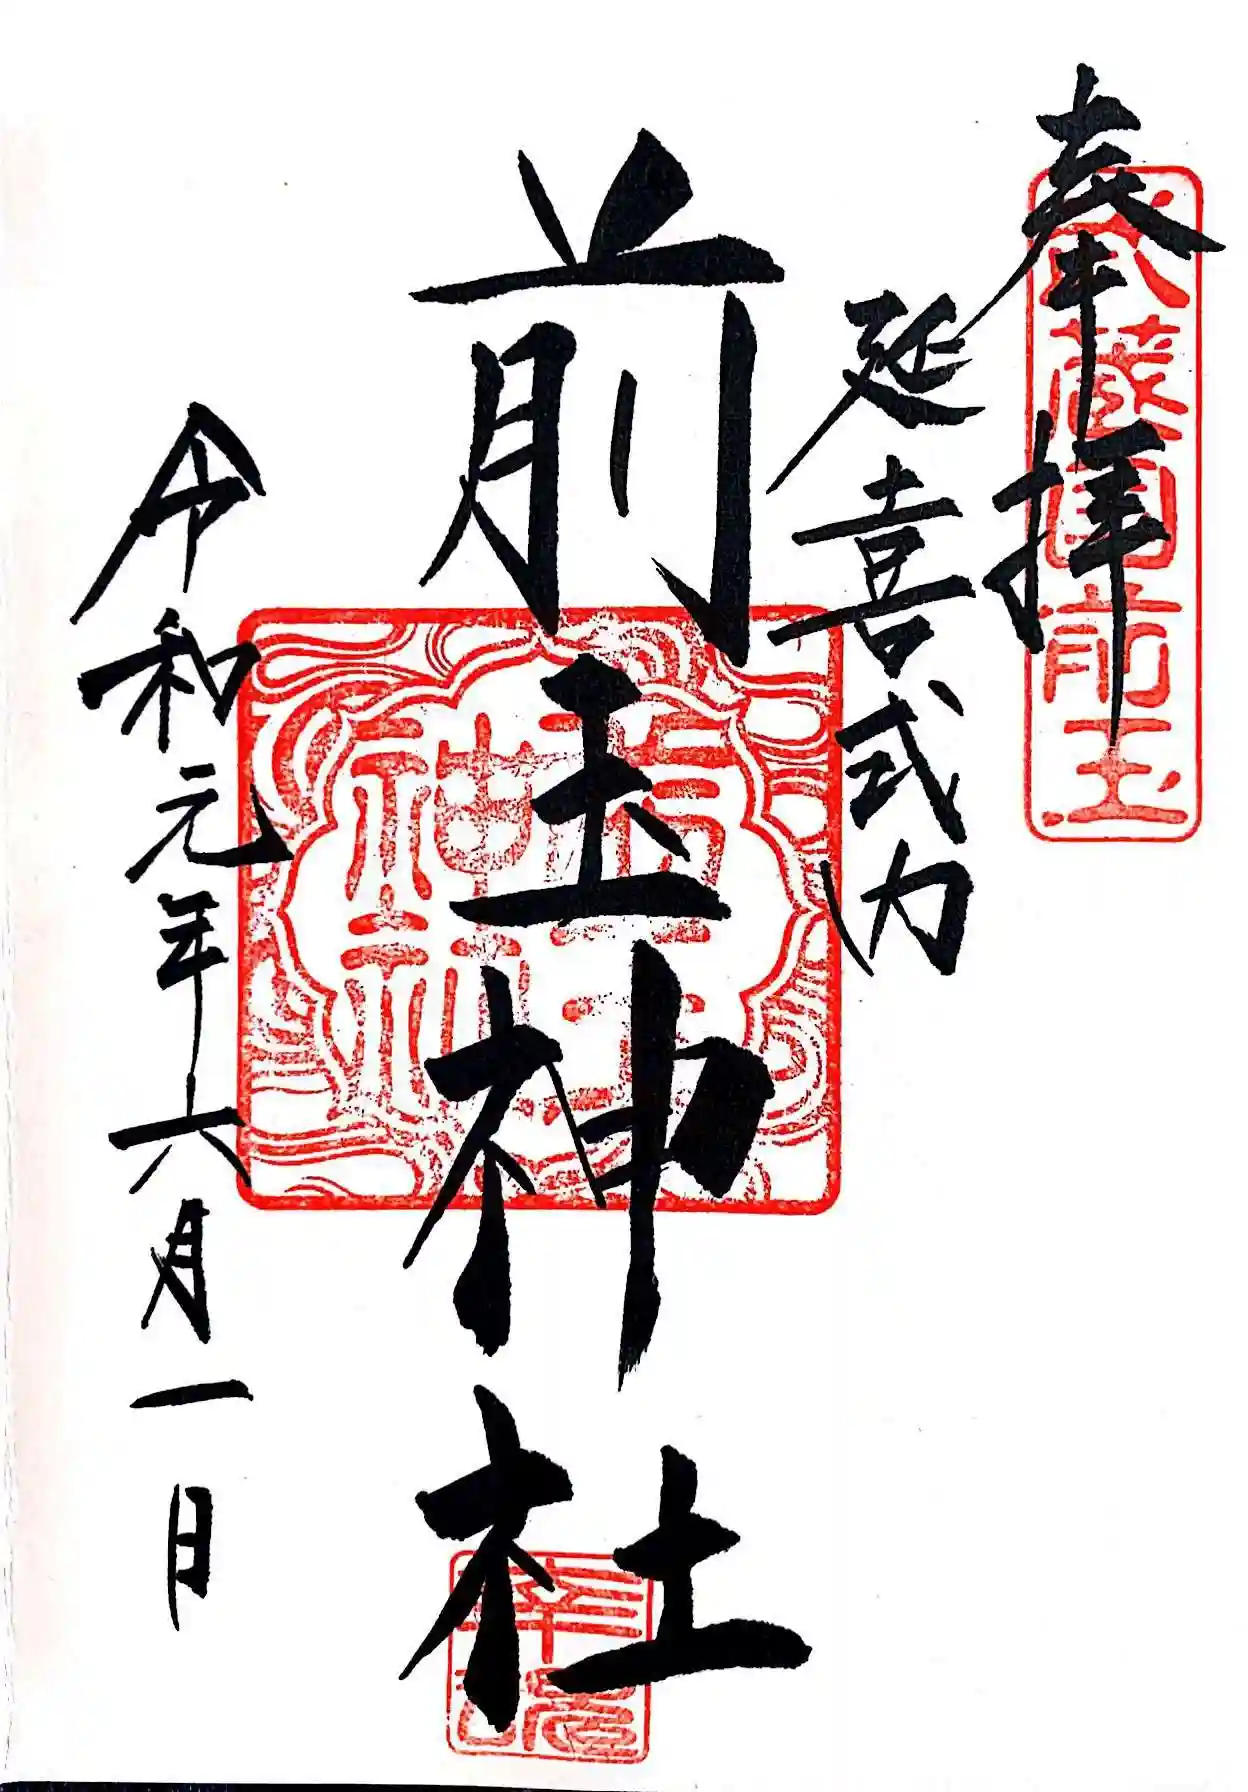 奉拝
武蔵国前玉
延喜式内
前玉神社
前玉神社
幸魂
令和元年六月一日